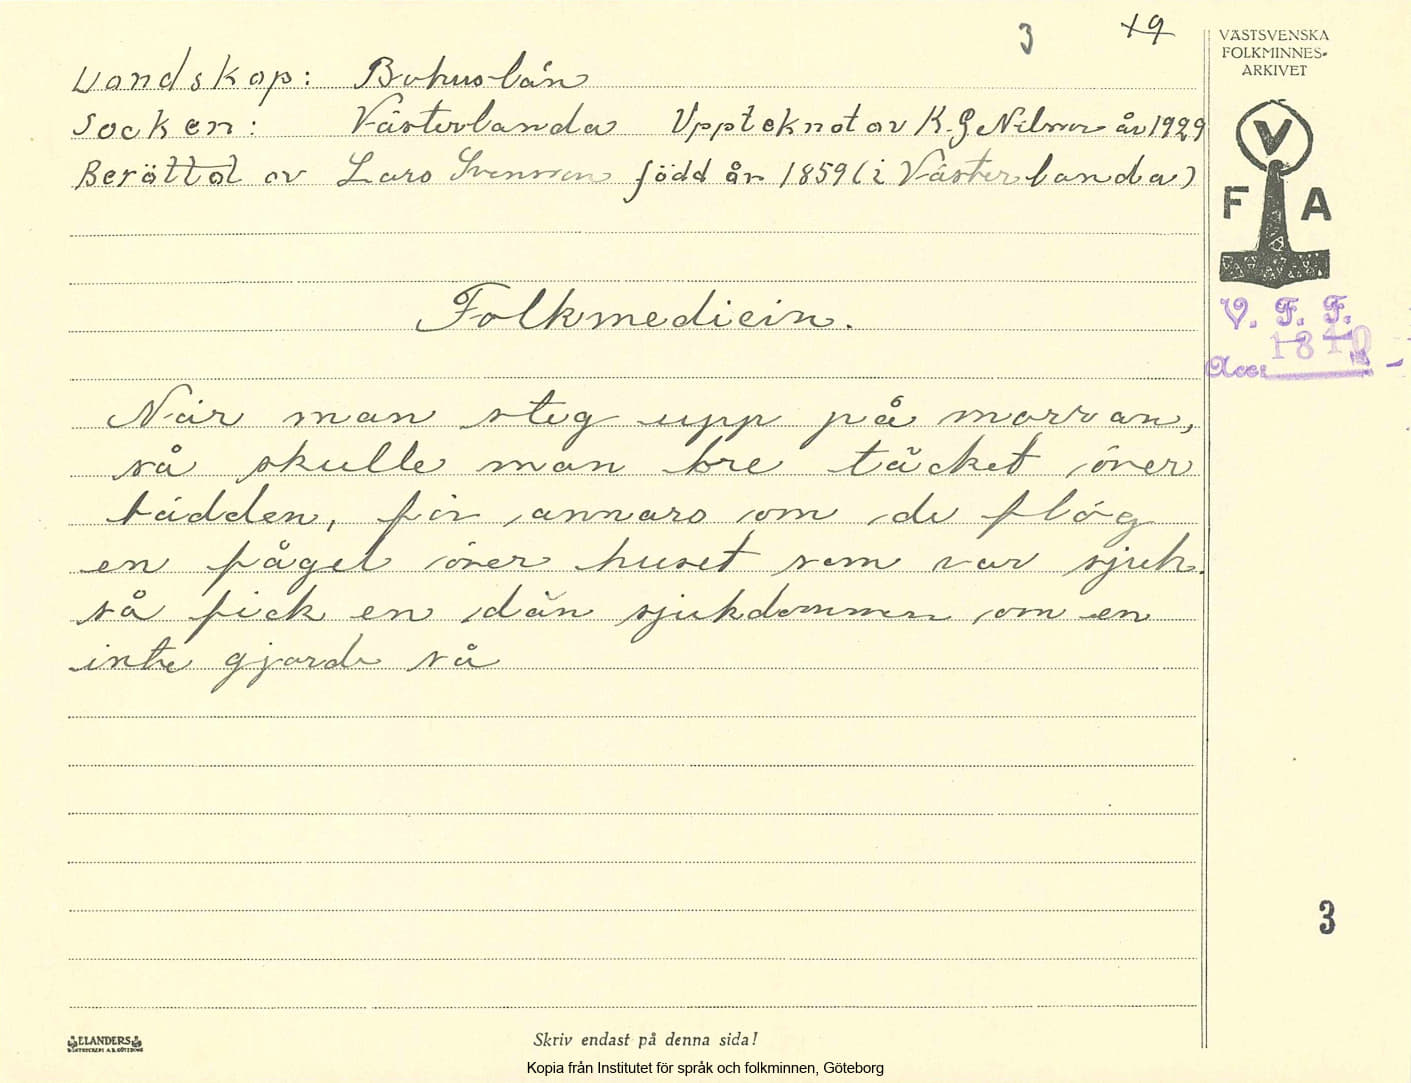 3
49
VÄSTSVENSKA
FOLKMINNES-
ARKIVET
Landskap: Bohuslän
Socken: Västerlanda Uppteknat av K.G Nilsson år 1929
Berättat av Lars Svensson född år 1859 (i Västerlanda)
V
F A
V. F. F.
1810
Acc:
Folkmedicin.
När man steg upp på morran,
så skulle man bre täcket över
bädden, för annars om de flög
en fågel över huset som var sjuk.
så fick en dän sjukdommen om en
inte gjorde så
3
ELANDERS
Skriv endast på denna sida!
Kopia från Institutet för språk och folkminnen, Göteborg